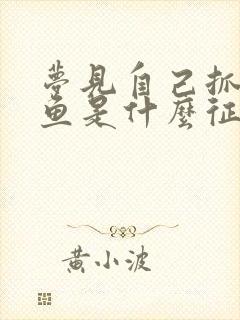 夢見自己抓
鱼是什麼征
黄小波